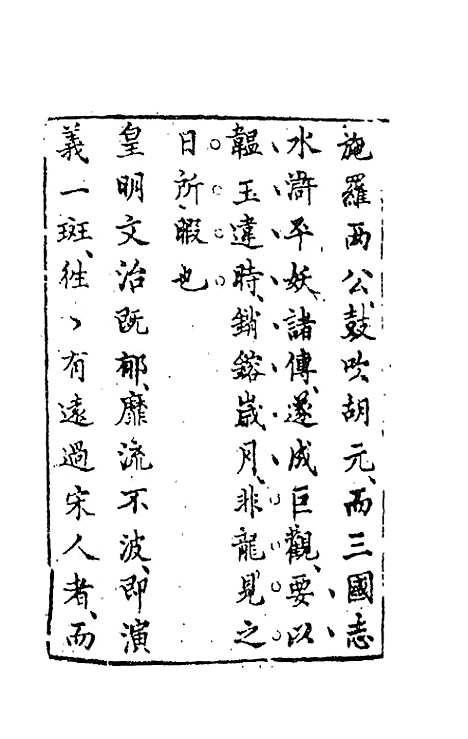 施羅兩公、鼓吹胡元、而三國志
水滸平妖諸傳、遂成巨觀、要以
韞玉違時、銷鎔歲月、非龍見之
日所暇也
皇明文治既郁、靡流不波、即演
義一斑、往〻有遠過宋人者、而